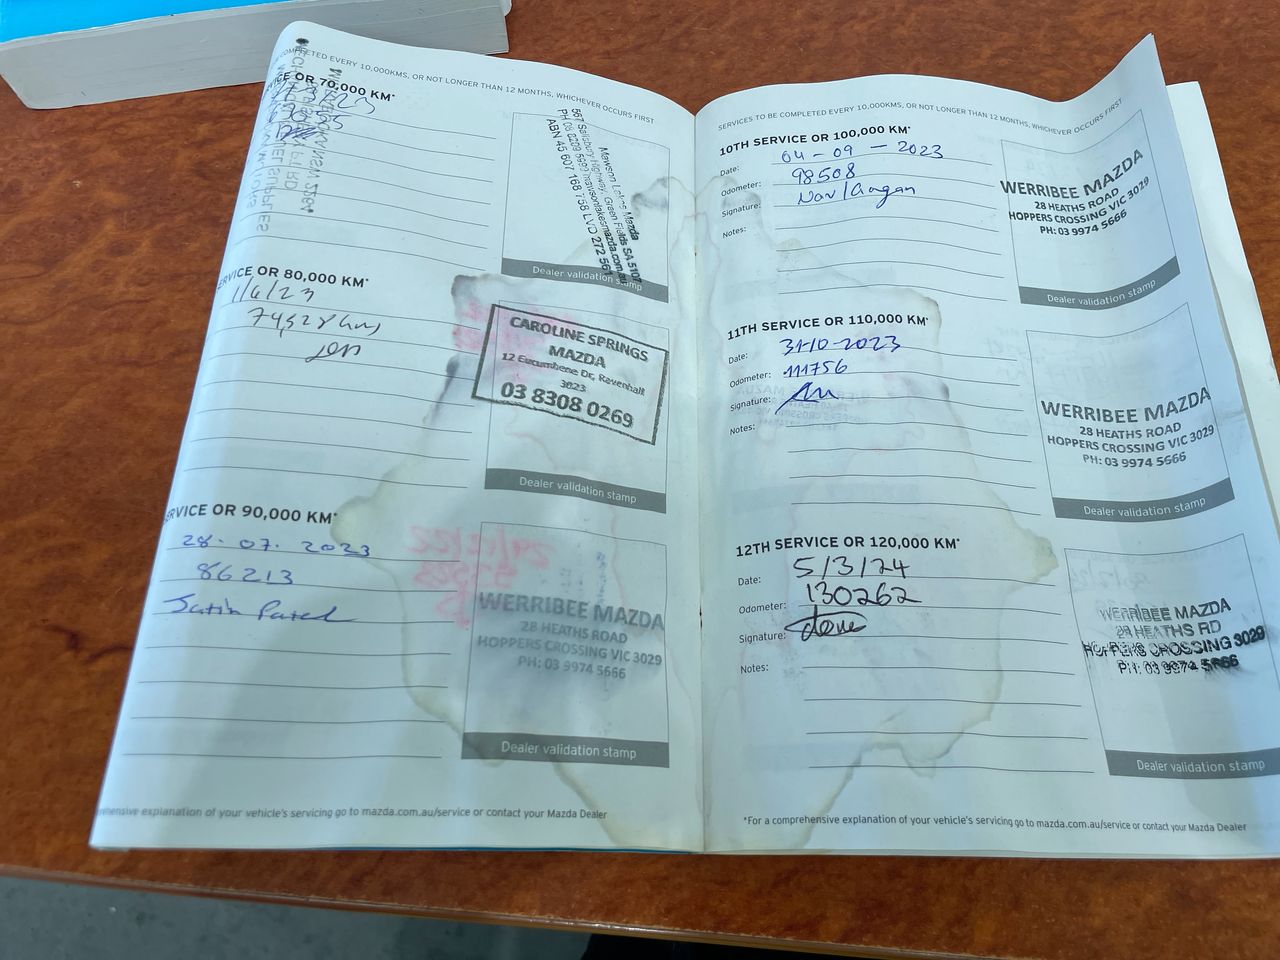 COMPLETED EVERY 10,000KMS, OR NOT LONGER THAN 12 MONTHS, WHICHEVER OCCURS FIRST
OR 70,000 KM*
Mawson Lakes Mazda
567 Salisbury Highway, Green Fields SA 5107
ABN 45 607 168 758 LVD 272 561
Dealer validation stamp
SERVICE OR 80,000 KM*
1/6/23
74528 kms
CAROLINE SPRINGS
MAZDA
12 Eucumbene Dr, Ravenhall
3023
03 8308 0269
Dealer validation stamp
SERVICE OR 90,000 KM*
28-07-2023
86213
WERRIBEE MAZDA
28 HEATHS ROAD
HOPPERS CROSSING VIC 3029
PH: 03 9974 5666
Dealer validation stamp
explanation of your vehicle's servicing go to mazda.com.au/service or contact your Mazda Dealer
SERVICES TO BE COMPLETED EVERY 10,000KMS, OR NOT LONGER THAN 12 MONTHS, WHICHEVER OCCURS FIRST
10TH SERVICE OR 100,000 KM*
Date: 04-09-2023
Odometer: 98508
Signature:
Notes:
WERRIBEE MAZDA
28 HEATHS ROAD
HOPPERS CROSSING VIC 3029
PH: 03 9974 5666
Dealer validation stamp
11TH SERVICE OR 110,000 KM*
Date: 31-10-2023
Odometer: 111756
Signature:
Notes:
WERRIBEE MAZDA
28 HEATHS ROAD
HOPPERS CROSSING VIC 3029
PH: 03 9974 5666
Dealer validation stamp
12TH SERVICE OR 120,000 KM*
Date: 5/3/24
Odometer: 130262
Signature:
Notes:
WERRIBEE MAZDA
28 HEATHS RD
HOPPERS CROSSING 3029
PH: 03 9974 5666
Dealer validation stamp
*For a comprehensive explanation of your vehicle's servicing go to mazda.com.au/service or contact your Mazda Dealer